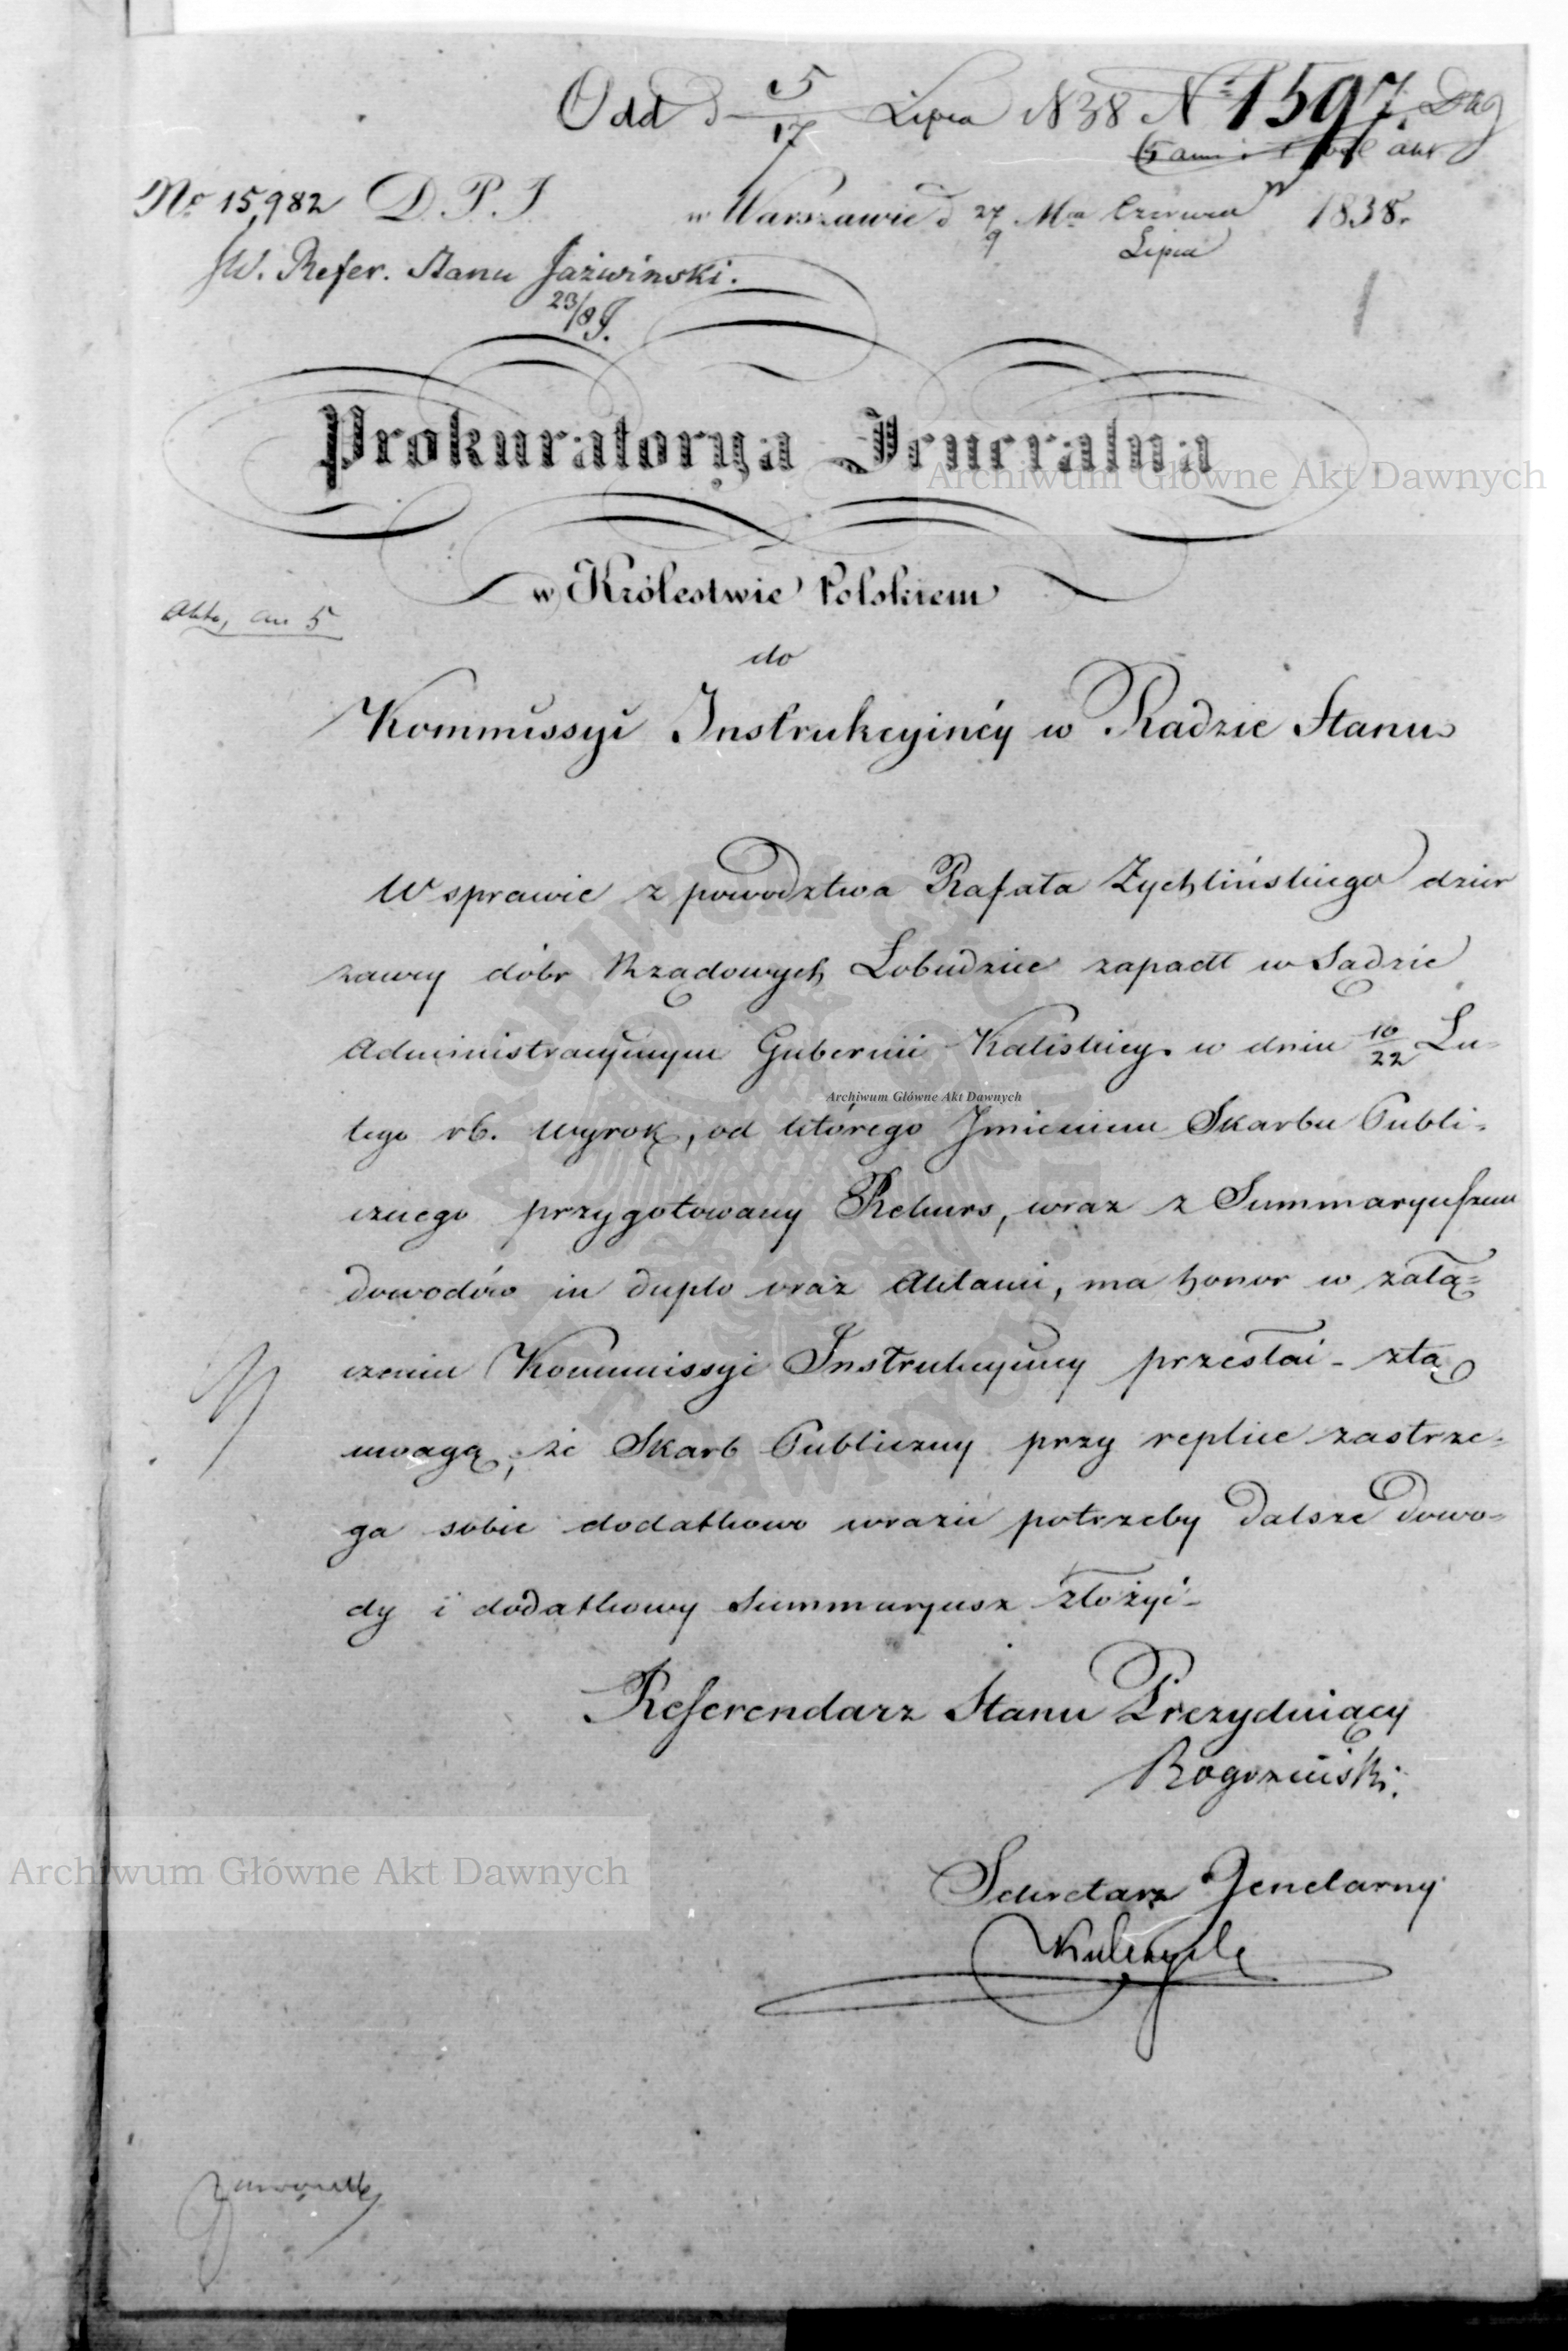 Odd d 5/17 Lipca 838 N 1597.
No 15,982 D. P. J. w Warszawie d 27/9 Mca Czerwca/Lipca 1838.
JW. Refer. Stanu Jaźwinski.
23/8 J.
Prokuratorya Jeneralna
w Królestwie Polskiem
do
Kommissyi Instrukcyinéy w Radzie Stanu
W sprawie z powodztwa Rafała Zychlińskiego dzier
zawcy dóbr Rządowych Łobudzice zapadł w Sądzie
Administracyinym Gubernii Kaliskiey w dniu 10/22 Lu-
tego rb. Wyrok, od którego Jmieniem Skarbu Publi-
cznego przygotowany Rekurs, wraz z Summaryuszem
dowodów in duplo oraz Aktami, ma honor w załą-
czeniu Kommissyi Instrukcyiney przesłać - z tą
uwagą, że Skarb Publiczny przy replice zastrze-
ga sobie dodatkowo wrazie potrzeby dalsze dowo-
dy i dodatkowy Summaryusz złożyć -
Referendarz Stanu Prezyduiący
Rogoziński.
Sekretarz Jeneralny
Archiwum Główne Akt Dawnych
Archiwum Główne Akt Dawnych
Archiwum Główne Akt Dawnych